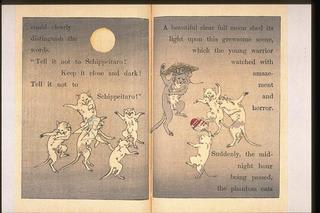 could clearly
distinguish the
words.
"Tell it not to Schippeitaro!
Keep it close and dark!
Tell it not to
Schippeitaro!"
A beautiful clear full moon shed its
light upon this gruesome scene,
which the young warrior
watched with
amaze-
ment
and
horror.
Suddenly, the mid-
night hour
being passed,
the phantom cats